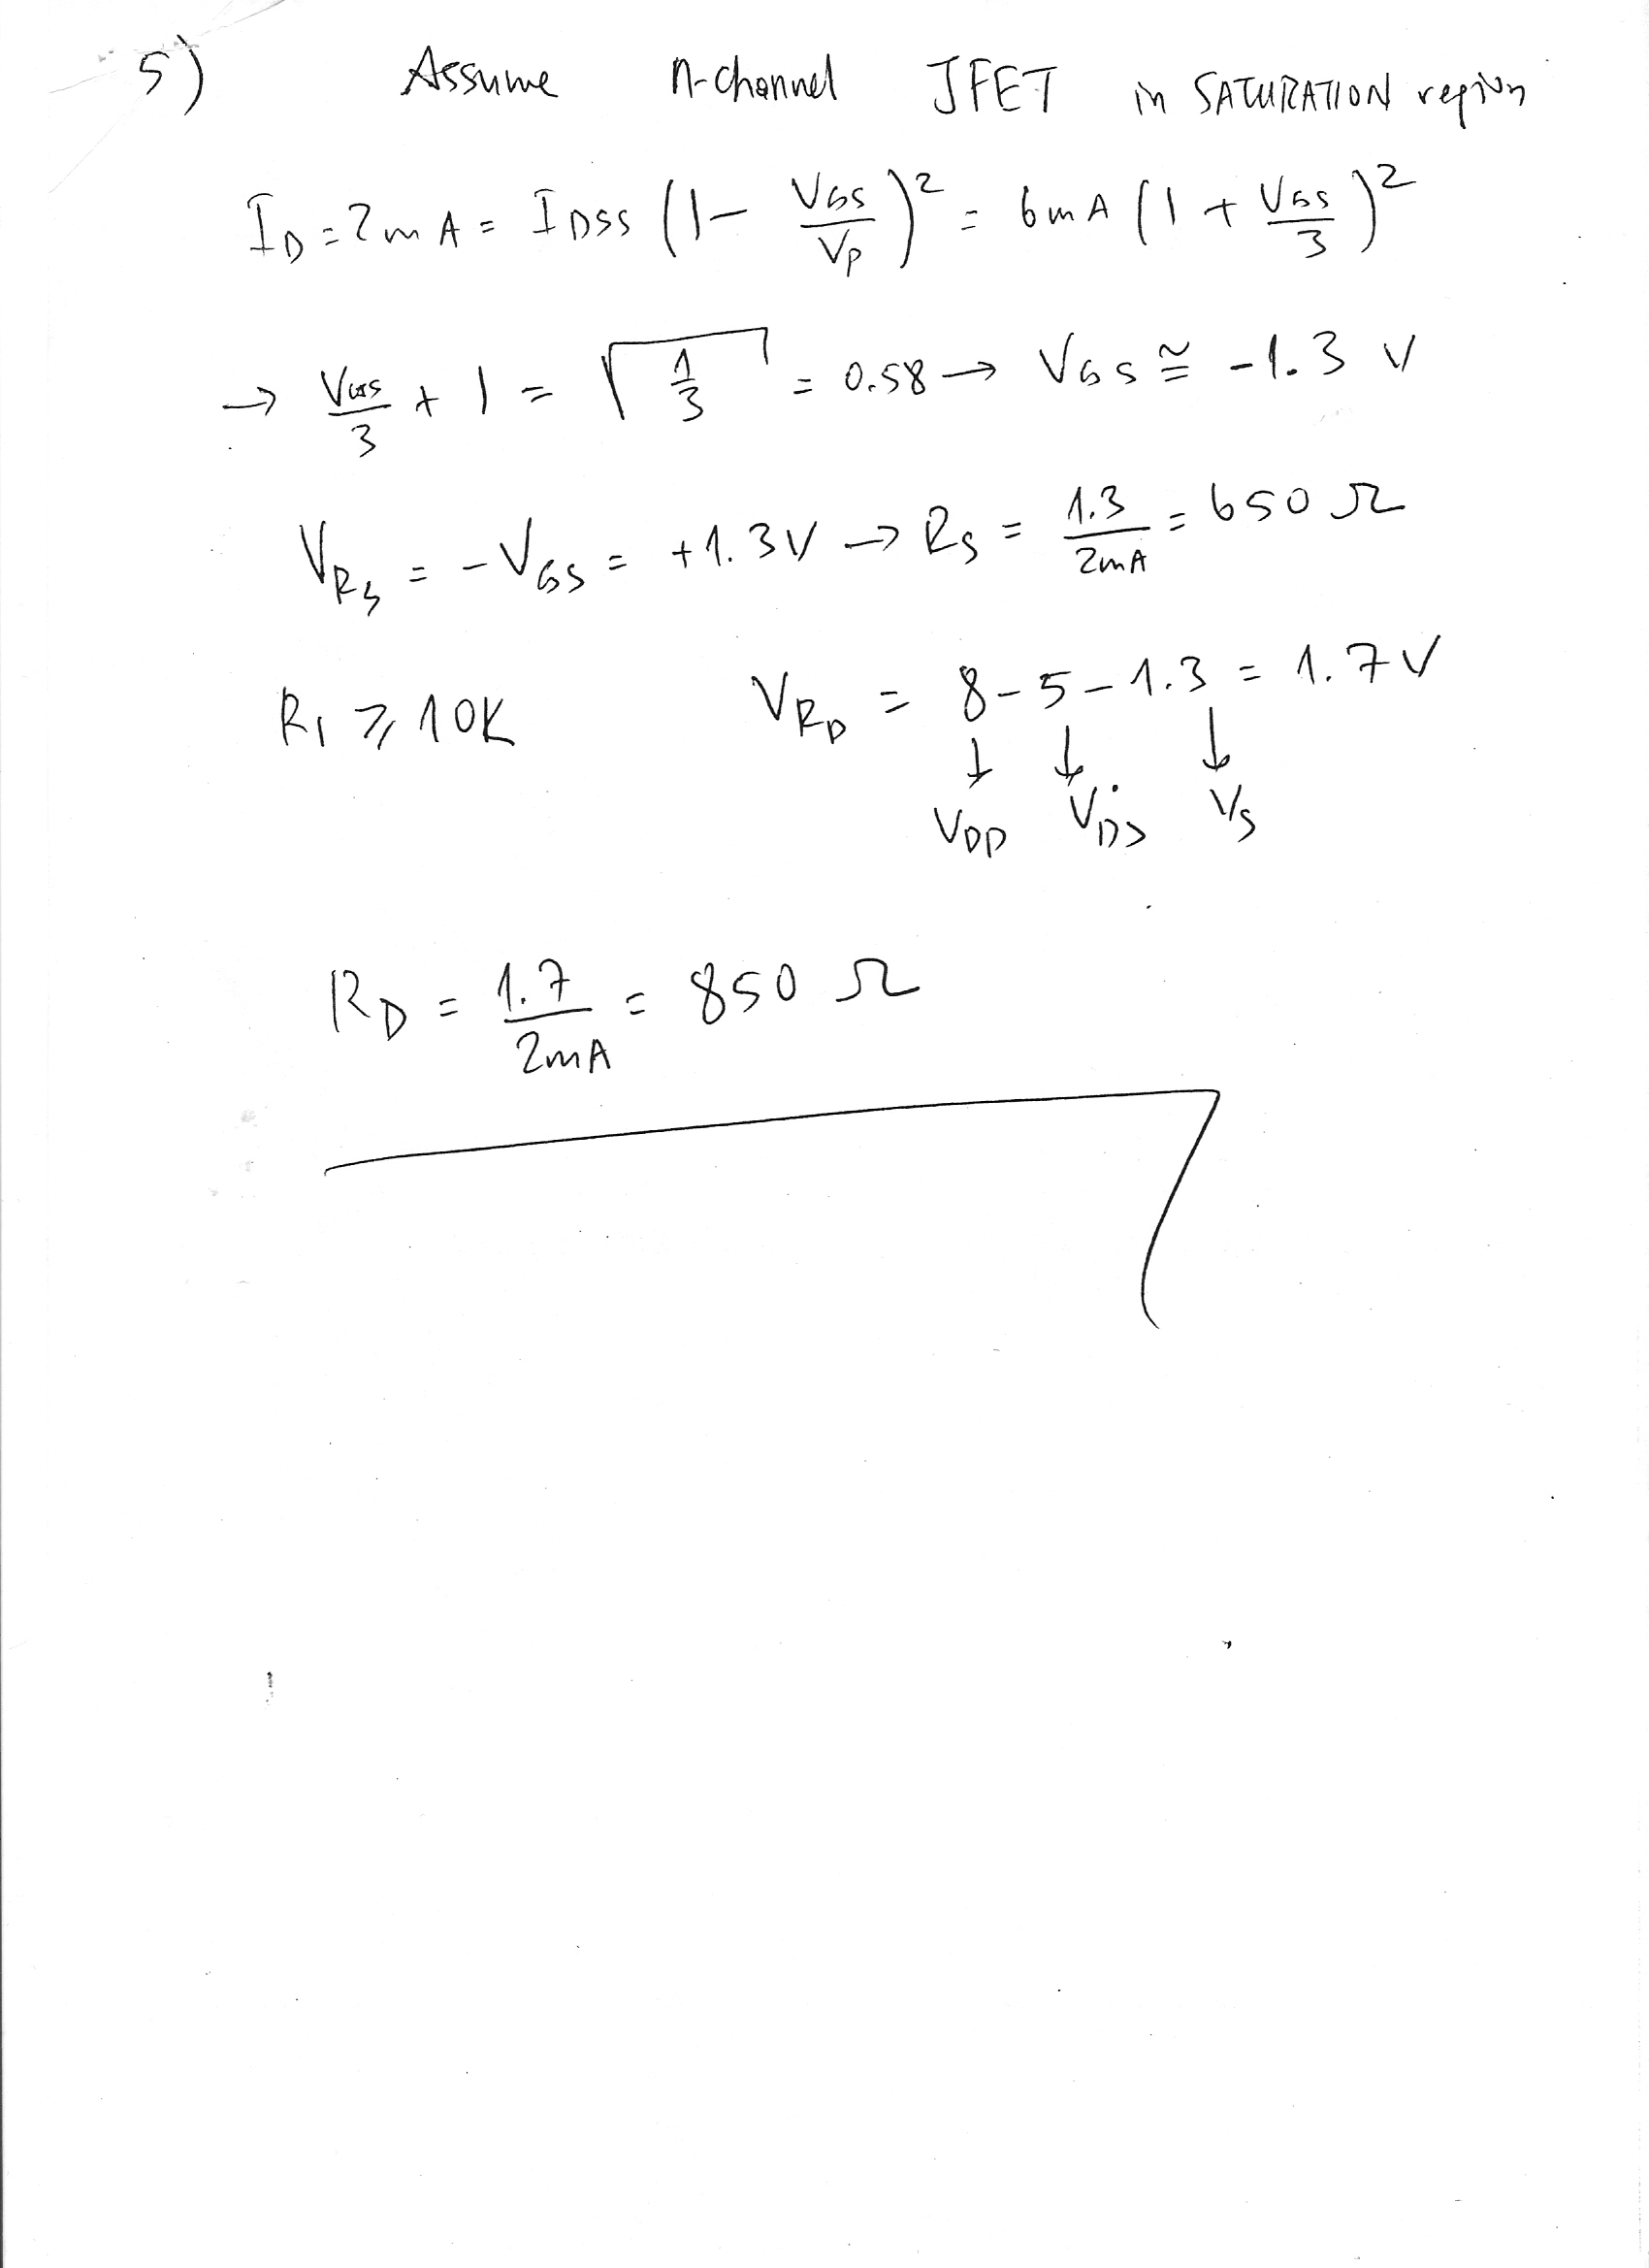 5) Assume n-channel JFET in SATURATION region
I_D = 2mA = I_DSS (1 - V_GS/V_P)^2 = 6mA (1 + V_GS/3)^2
→ V_GS/3 + 1 = √(1/3) = 0.58 → V_GS ≅ -1.3 V
V_RS = -V_GS = +1.3V → R_S = 1.3/2mA = 650 Ω
R_1 ⩾ 10K V_RD = 8-5-1.3 = 1.7V
↓ ↓ ↓
V_DD V_DS V_S
R_D = 1.7/2mA = 850 Ω